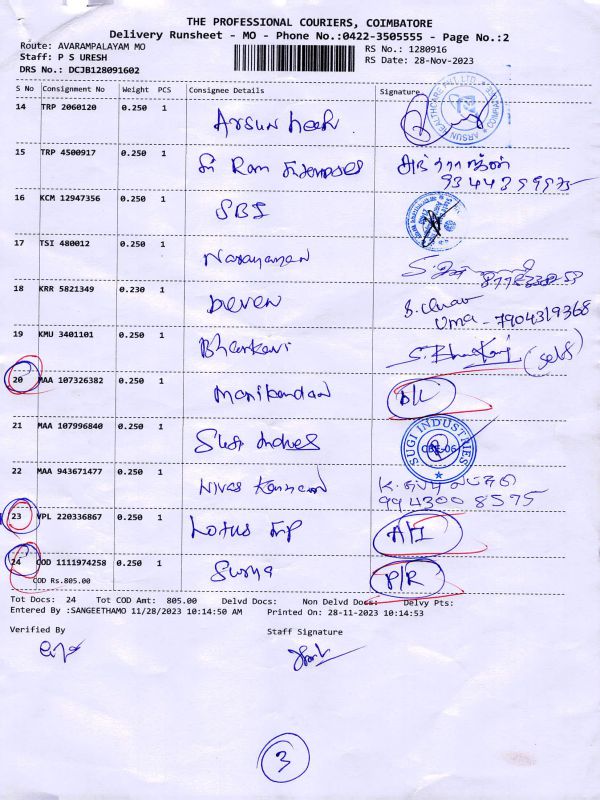 THE PROFESSIONAL COURIERS, COIMBATORE
Delivery Runsheet - MO - Phone No.:0422-3505555 - Page No.:2
Route: AVARAMPALAYAM MO
RS No.: 1280916
Staff: P S URESH
RS Date: 28-Nov-2023
DRS No.: DCJB128091602
S No Consignment No Weight PCS Consignee Details Signature
14 TRP 2060120 0.250 1 Arsun heath
ARSUN HEALTHCARE PVT. LTD.
15 TRP 4500917 0.250 1 Sri Ram Enterprises
93443 59575
16 KCM 12947356 0.250 1 SBS
17 TSI 480012 0.250 1 Narayanan
18 KRR 5821349 0.230 1 Deven
Uma - 7904319368
19 KMU 3401101 0.250 1 Bhaskari S. (self)
20 MAA 107326382 0.250 1 Manikandan D/L
21 MAA 107996840 0.250 1 Sugi Indus
SUGI INDUSTRIES
CBE-06
22 MAA 943671477 0.250 1 Nivas Kannan
994300 8575
23 VPL 220336867 0.250 1 Lotus Ent A/I
24 COD 1111974258 0.250 1 Surya P/R
COD Rs.805.00
Tot Docs: 24 Tot COD Amt: 805.00 Delvd Docs: Non Delvd Docs: Delvy Pts:
Entered By :SANGEETHAMO 11/28/2023 10:14:50 AM Printed On: 28-11-2023 10:14:53
Verified By Staff Signature
3